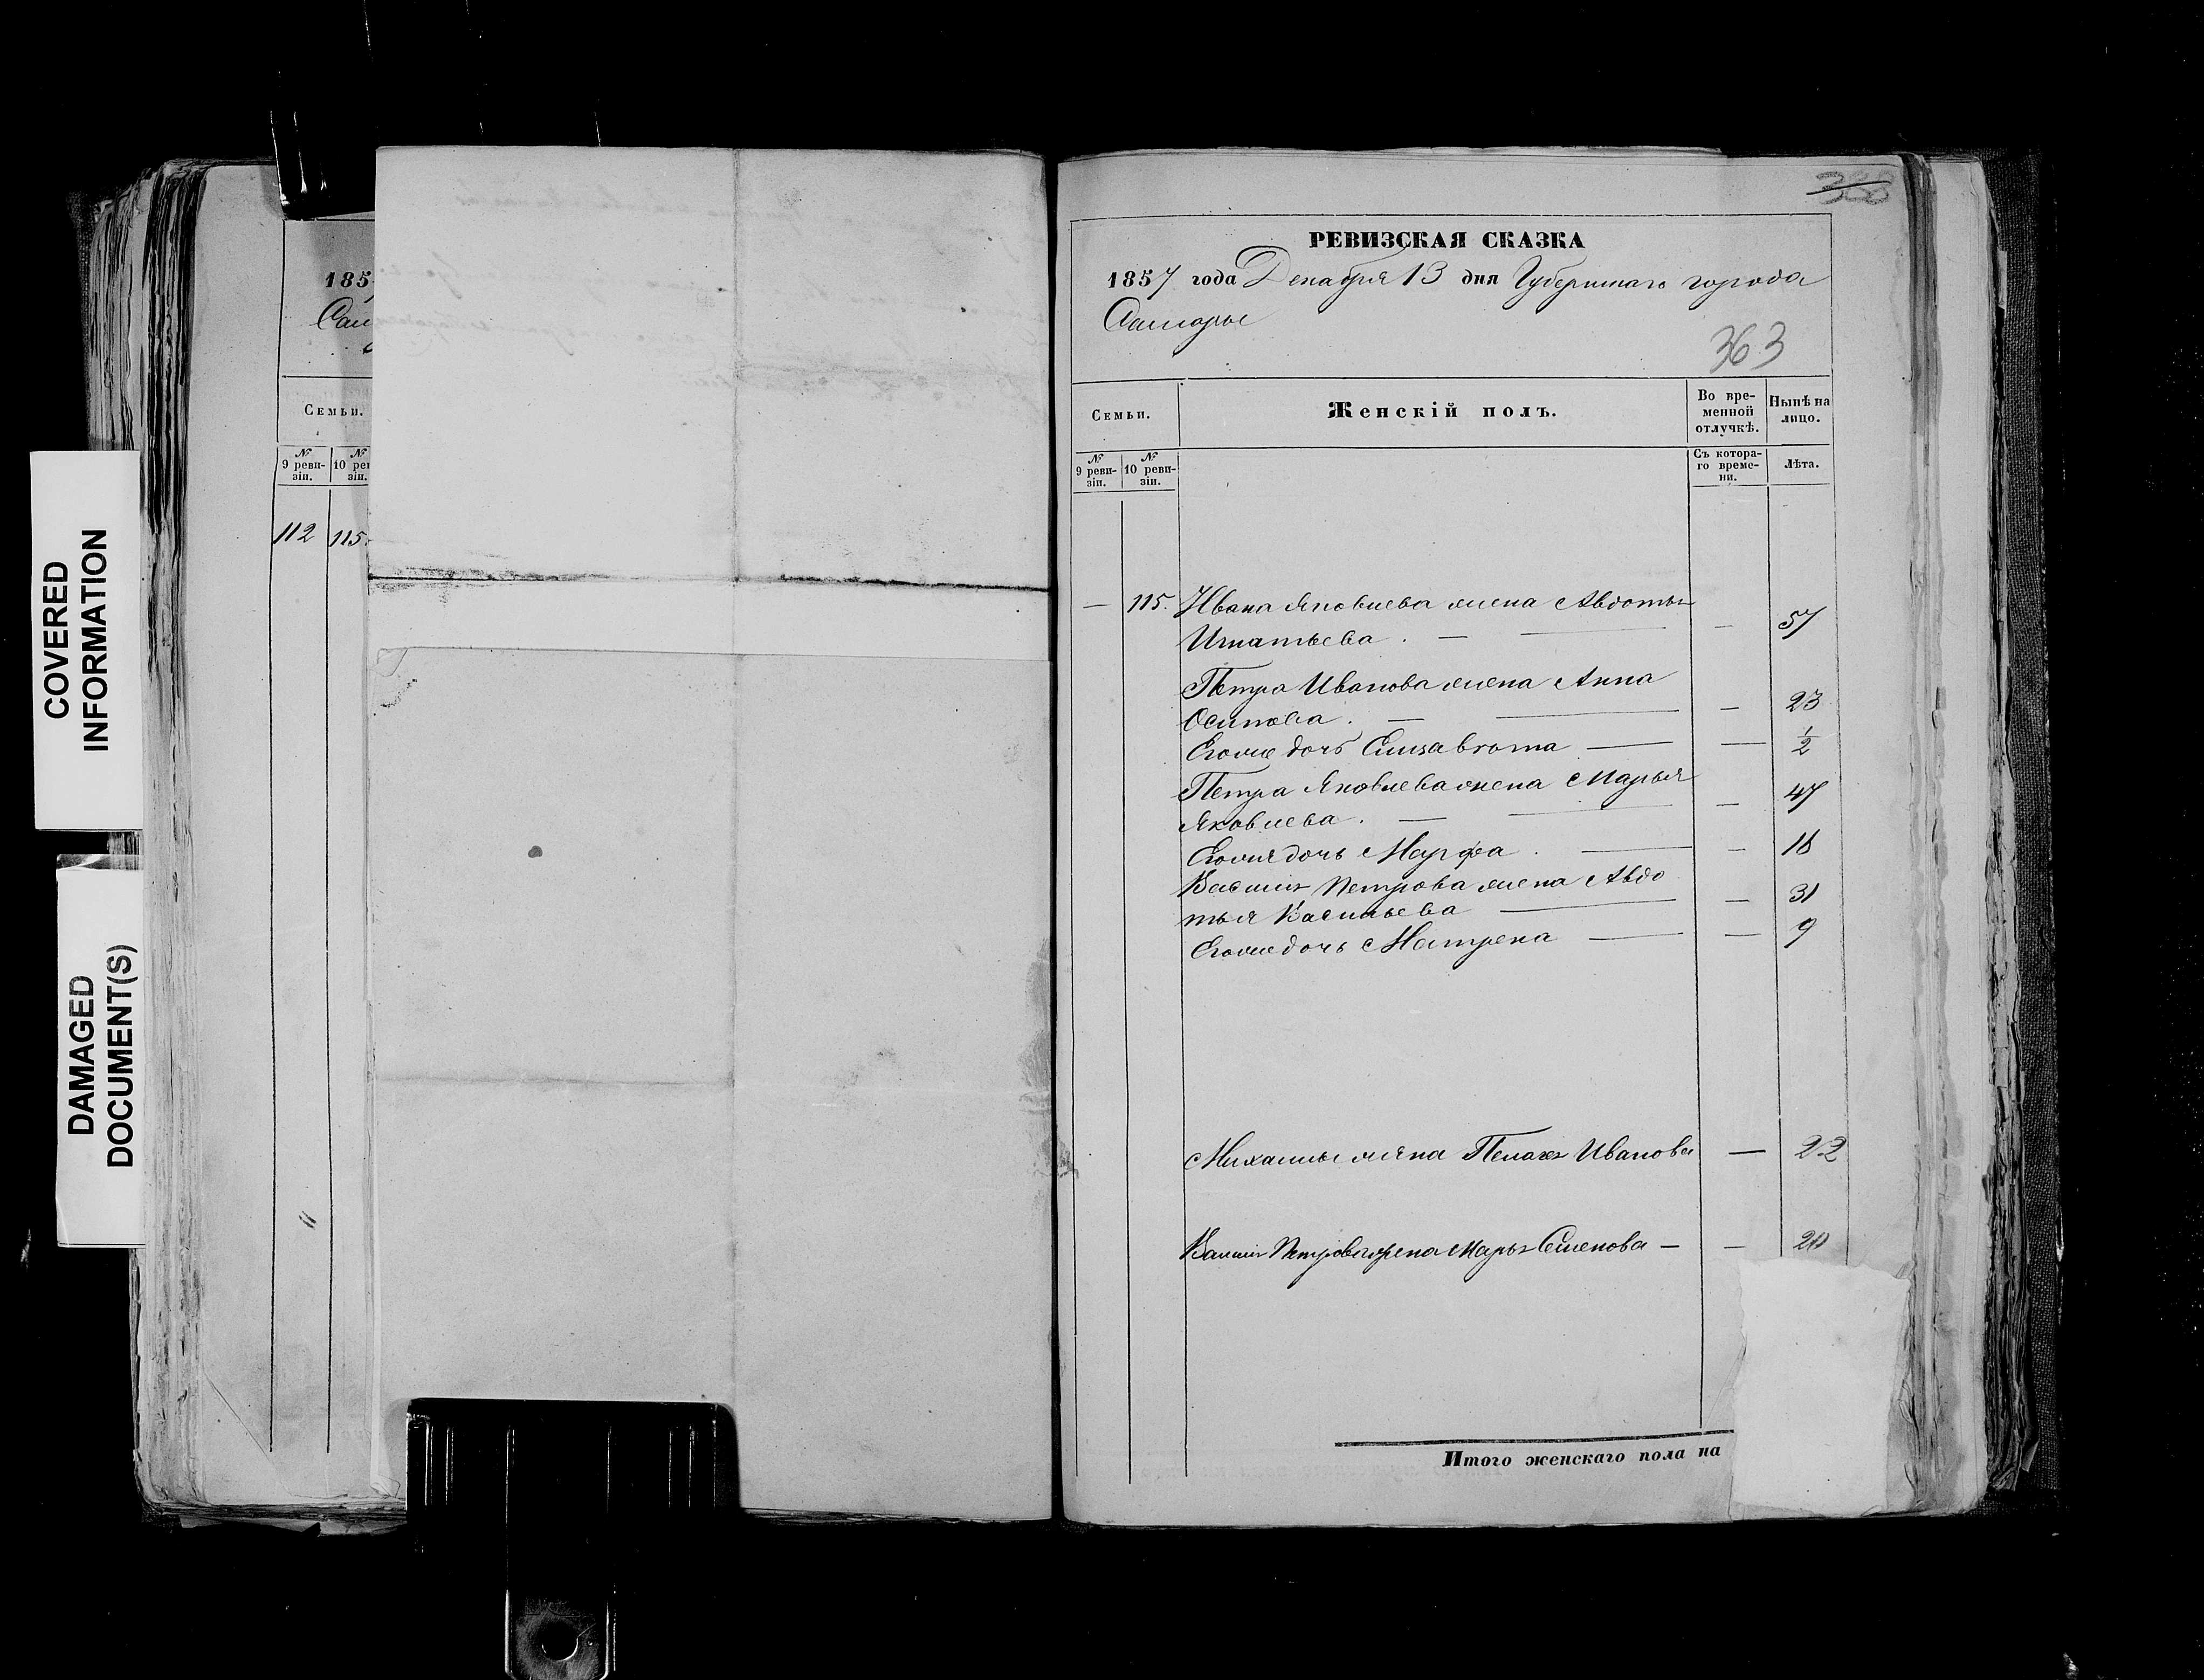 COVERED
INFORMATION
DAMAGED
DOCUMENT(S)
185
Сам
Семьи.
№
9 реви-
зіи.
№
10 рев
зіи.
112 115.
388
РЕВИЗСКАЯ СКАЗКА
1857 года Декабря 13 дня Губернскаго города
Самары
363
Семьи.
Женскій полъ.
Во вре-
менной
отлучкѣ.
Нынѣ на
лицо.
№
9 реви-
зіи.
№
10 реви-
зіи.
Съ котора-
го време-
ни.
Лѣта.
— 115. Ивана Яковлева жена Авдотья
Игнатьева . — — — 57
Петра Иванова жена Анна
Осипова . — — — 23
Егоже дочь Елизавета — — 1/2
Петра Яковлева жена Марья
Яковлева . — — — 47
Егоже дочь Марфа . — — 16
Василья Петрова жена Авдо
тья Васильева — — 31
Егоже дочь Матрена — — 9
Михаилы жена Пелагея Иванова — 22
Василья Петрова жена Марья Семенова — — 20
Итого женскаго пола на